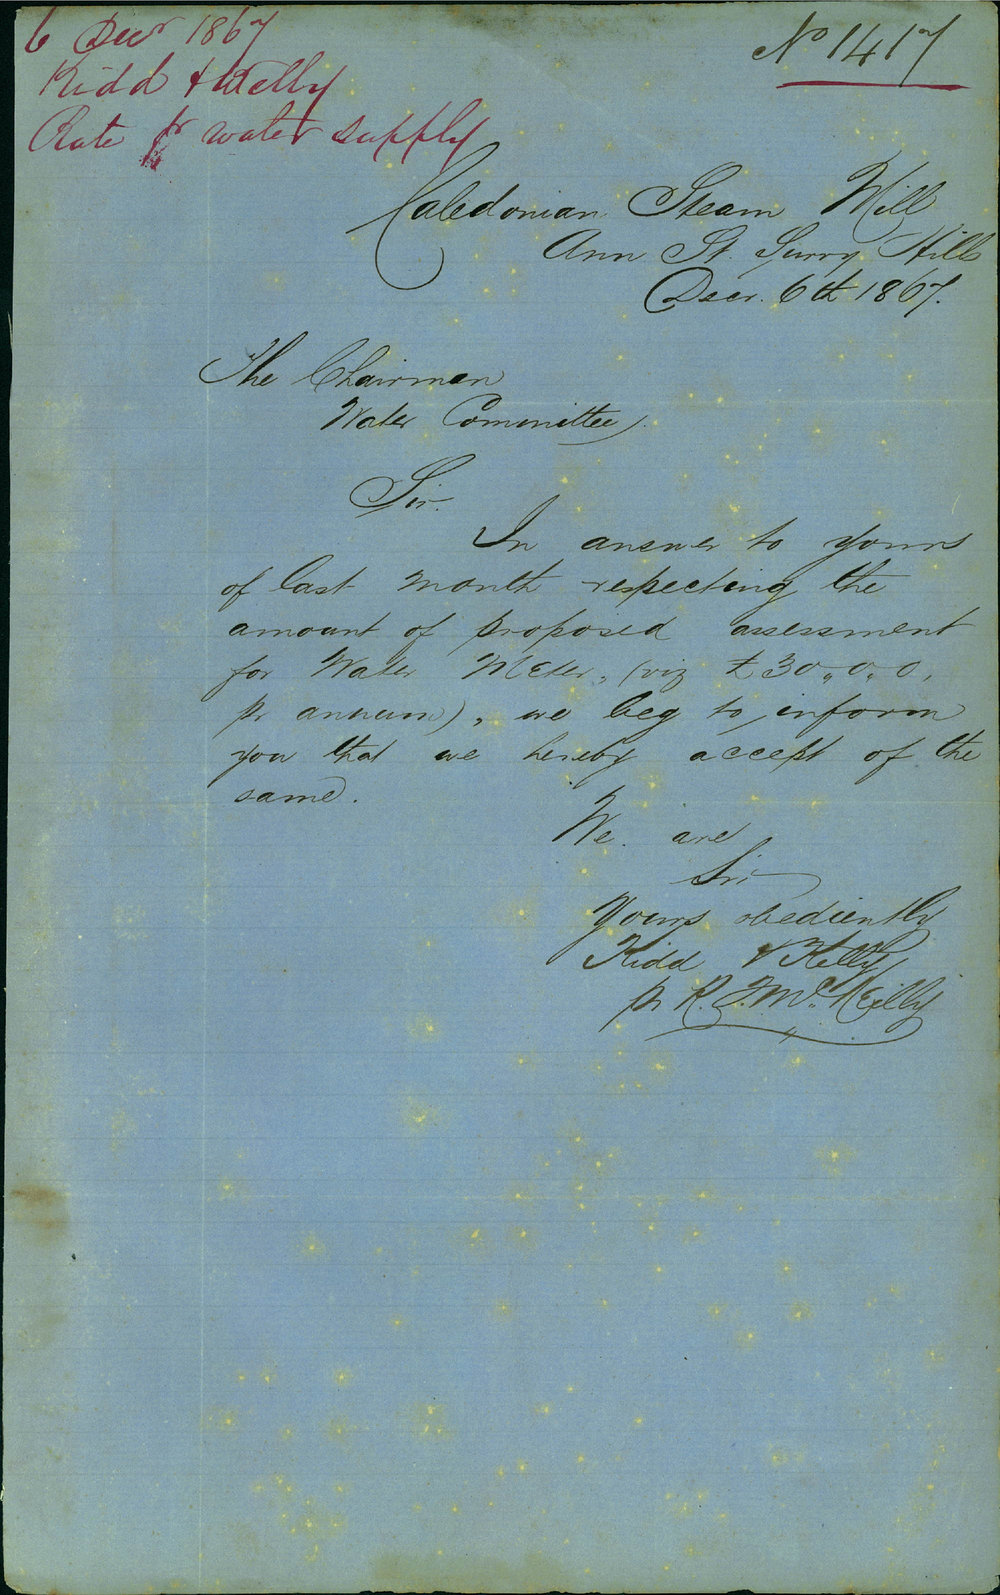 6 Decr 1867
Kidd & Kelly
Rate for water supply
No 1417
Caledonian Steam Mill
Ann St. Surry Hills
Decr. 6th 1867.
The Chairman
Water Committee
Sir.
In answer to yours
of last month respecting the
amount of proposed assessment
for Water Meter, (viz £30,,0,,0,
pr annum), we beg to inform
you that we hereby accept of the
same.
We are
Sir
Yours obediently
Kidd & Kelly
pr R. J. McNeilly